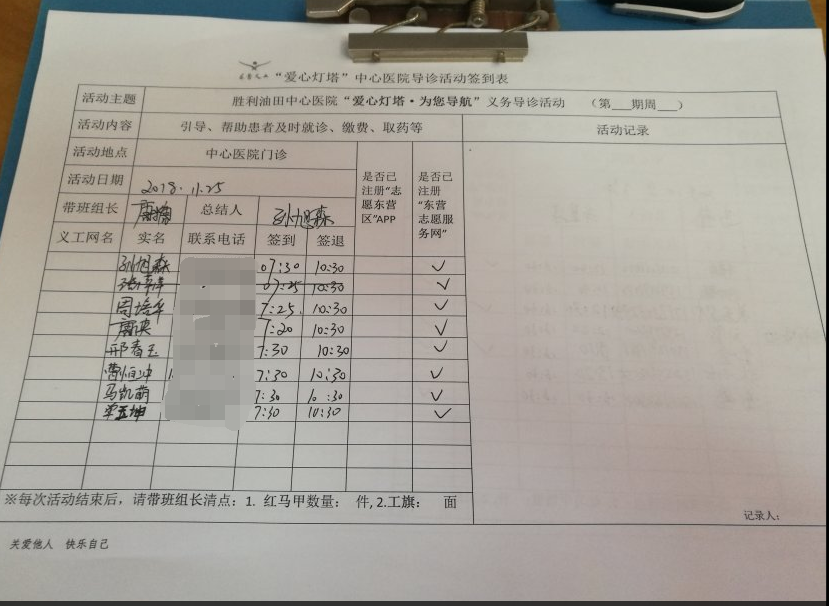 “爱心灯塔”中心医院导诊活动签到表
活动主题 胜利油田中心医院“爱心灯塔·为您导航”义务导诊活动 （第___期周___）
活动内容 引导、帮助患者及时就诊、缴费、取药等 活动记录
活动地点 中心医院门诊 是否已注册“志愿东营区”APP 是否已注册“东营志愿服务网”
活动日期 2018.11.25
带班组长 总结人 孙旭森
义工网名 实名 联系电话 签到 签退
孙旭森 07:30 10:30 ✓
07:25 10:30 ✓
周培华 7:25 10:30 ✓
7:20 10:30 ✓
邢春玉 7:30 10:30 ✓
曹恒冲 7:30 10:30 ✓
马凯萌 7:30 10:30 ✓
7:30 10:30 ✓
※每次活动结束后，请带班组长清点：1. 红马甲数量： 件,2.工旗： 面
记录人：
关爱他人 快乐自己